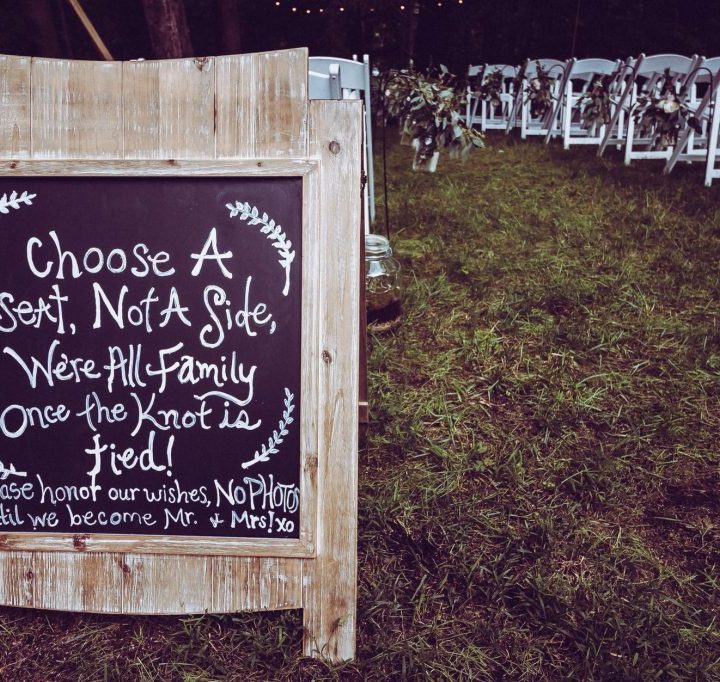 Choose A
Seat, Not A Side,
We're All Family
Once the Knot is
tied!
ease honor our wishes, NO PHOTOS
til we become Mr. & Mrs! xo